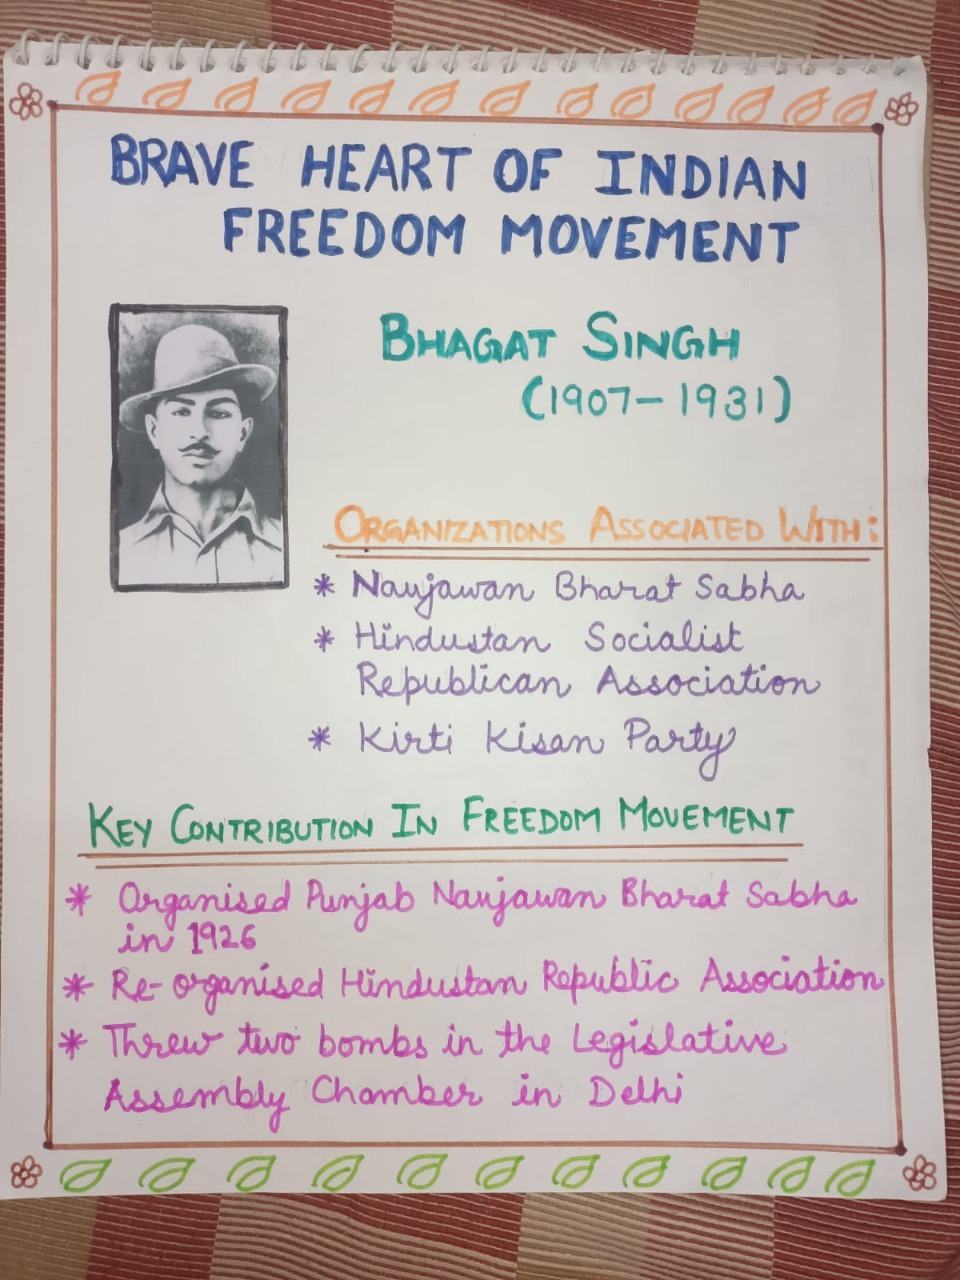 BRAVE HEART OF INDIAN
FREEDOM MOVEMENT
BHAGAT SINGH
(1907-1931)
ORGANIZATIONS ASSOCIATED WITH:
* Naujawan Bharat Sabha
* Hindustan Socialist
Republican Association
* Kirti Kisan Party
KEY CONTRIBUTION IN FREEDOM MOVEMENT
* Organised Punjab Naujawan Bharat Sabha
in 1926
* Re-organised Hindustan Republic Association
* Threw two bombs in the Legislative
Assembly Chamber in Delhi